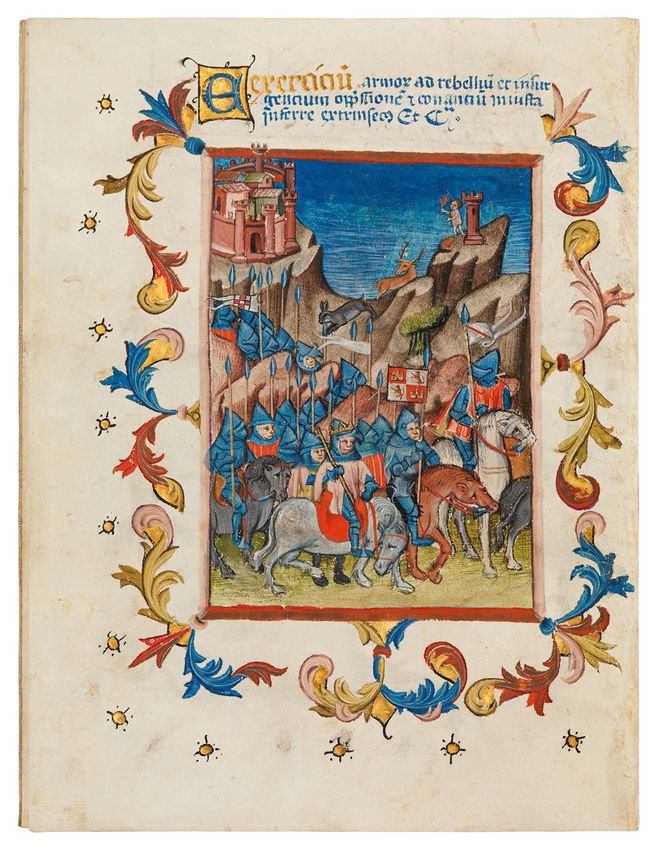 Exerciciū armoꝝ ad rebelliū et insur
genciuın opp̄ssionē ⁊ conanciū iniusta
inferre extrinseco Et Cᵃ